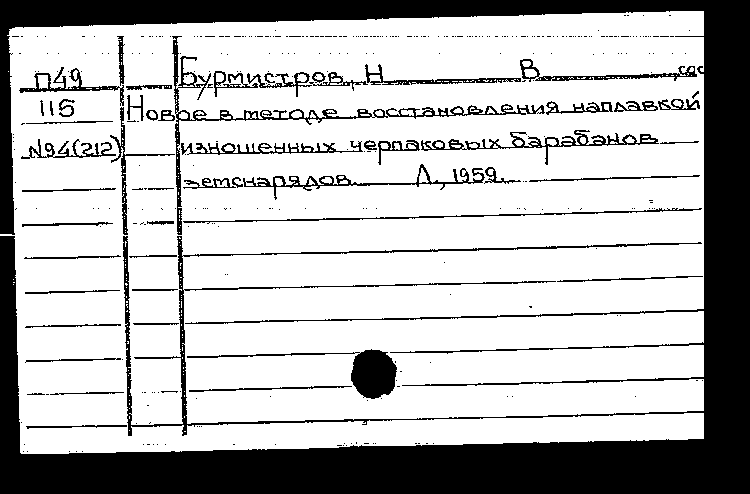 П49 Бурмистров, Н В , сос
115 Новое в методе восстановления наплавкой
№94(212) изношенных черпаковых барабанов
земснарядов. Л., 1959.